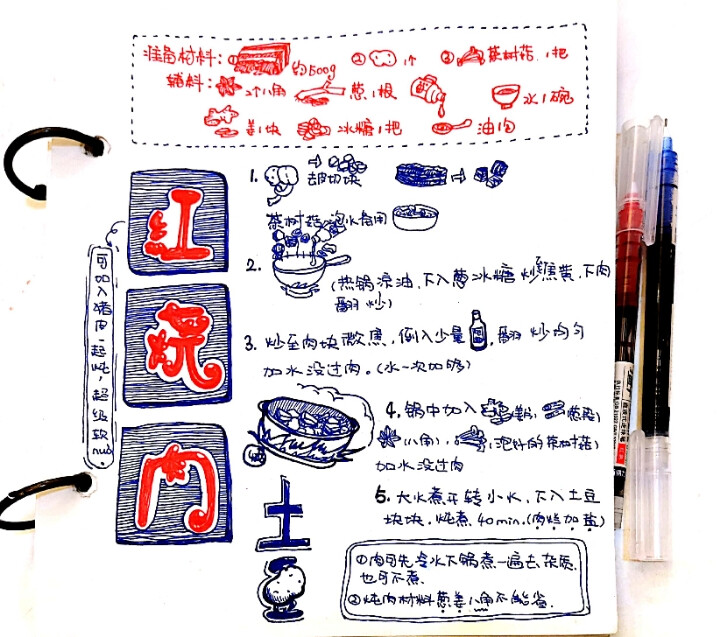 准备材料：① 约500g ② 1个 ③ 茶树菇，1把
辅料： 2个八角 葱1根 水1碗
姜1块 冰糖1把 油1勺
1. 切块
茶树菇泡水备用
2. (热锅凉油，下入葱冰糖炒焦黄，下肉
翻炒)
3. 炒至肉块微焦，倒入少量 ，翻炒均匀
加水没过肉。(水一次加够)
4. 锅中加入 (姜)， (葱段)
(八角)， (泡好的茶树菇)
加水没过肉
5. 大火煮开转小火，下入土豆
块块，炖煮40min.(肉烂加盐)
①肉可先冷水下锅煮一遍去杂质，
也可不煮．
②炖肉材料葱姜八角不能省．
红
烧
肉
土
可加入猪肉一起炖，超级软nuo